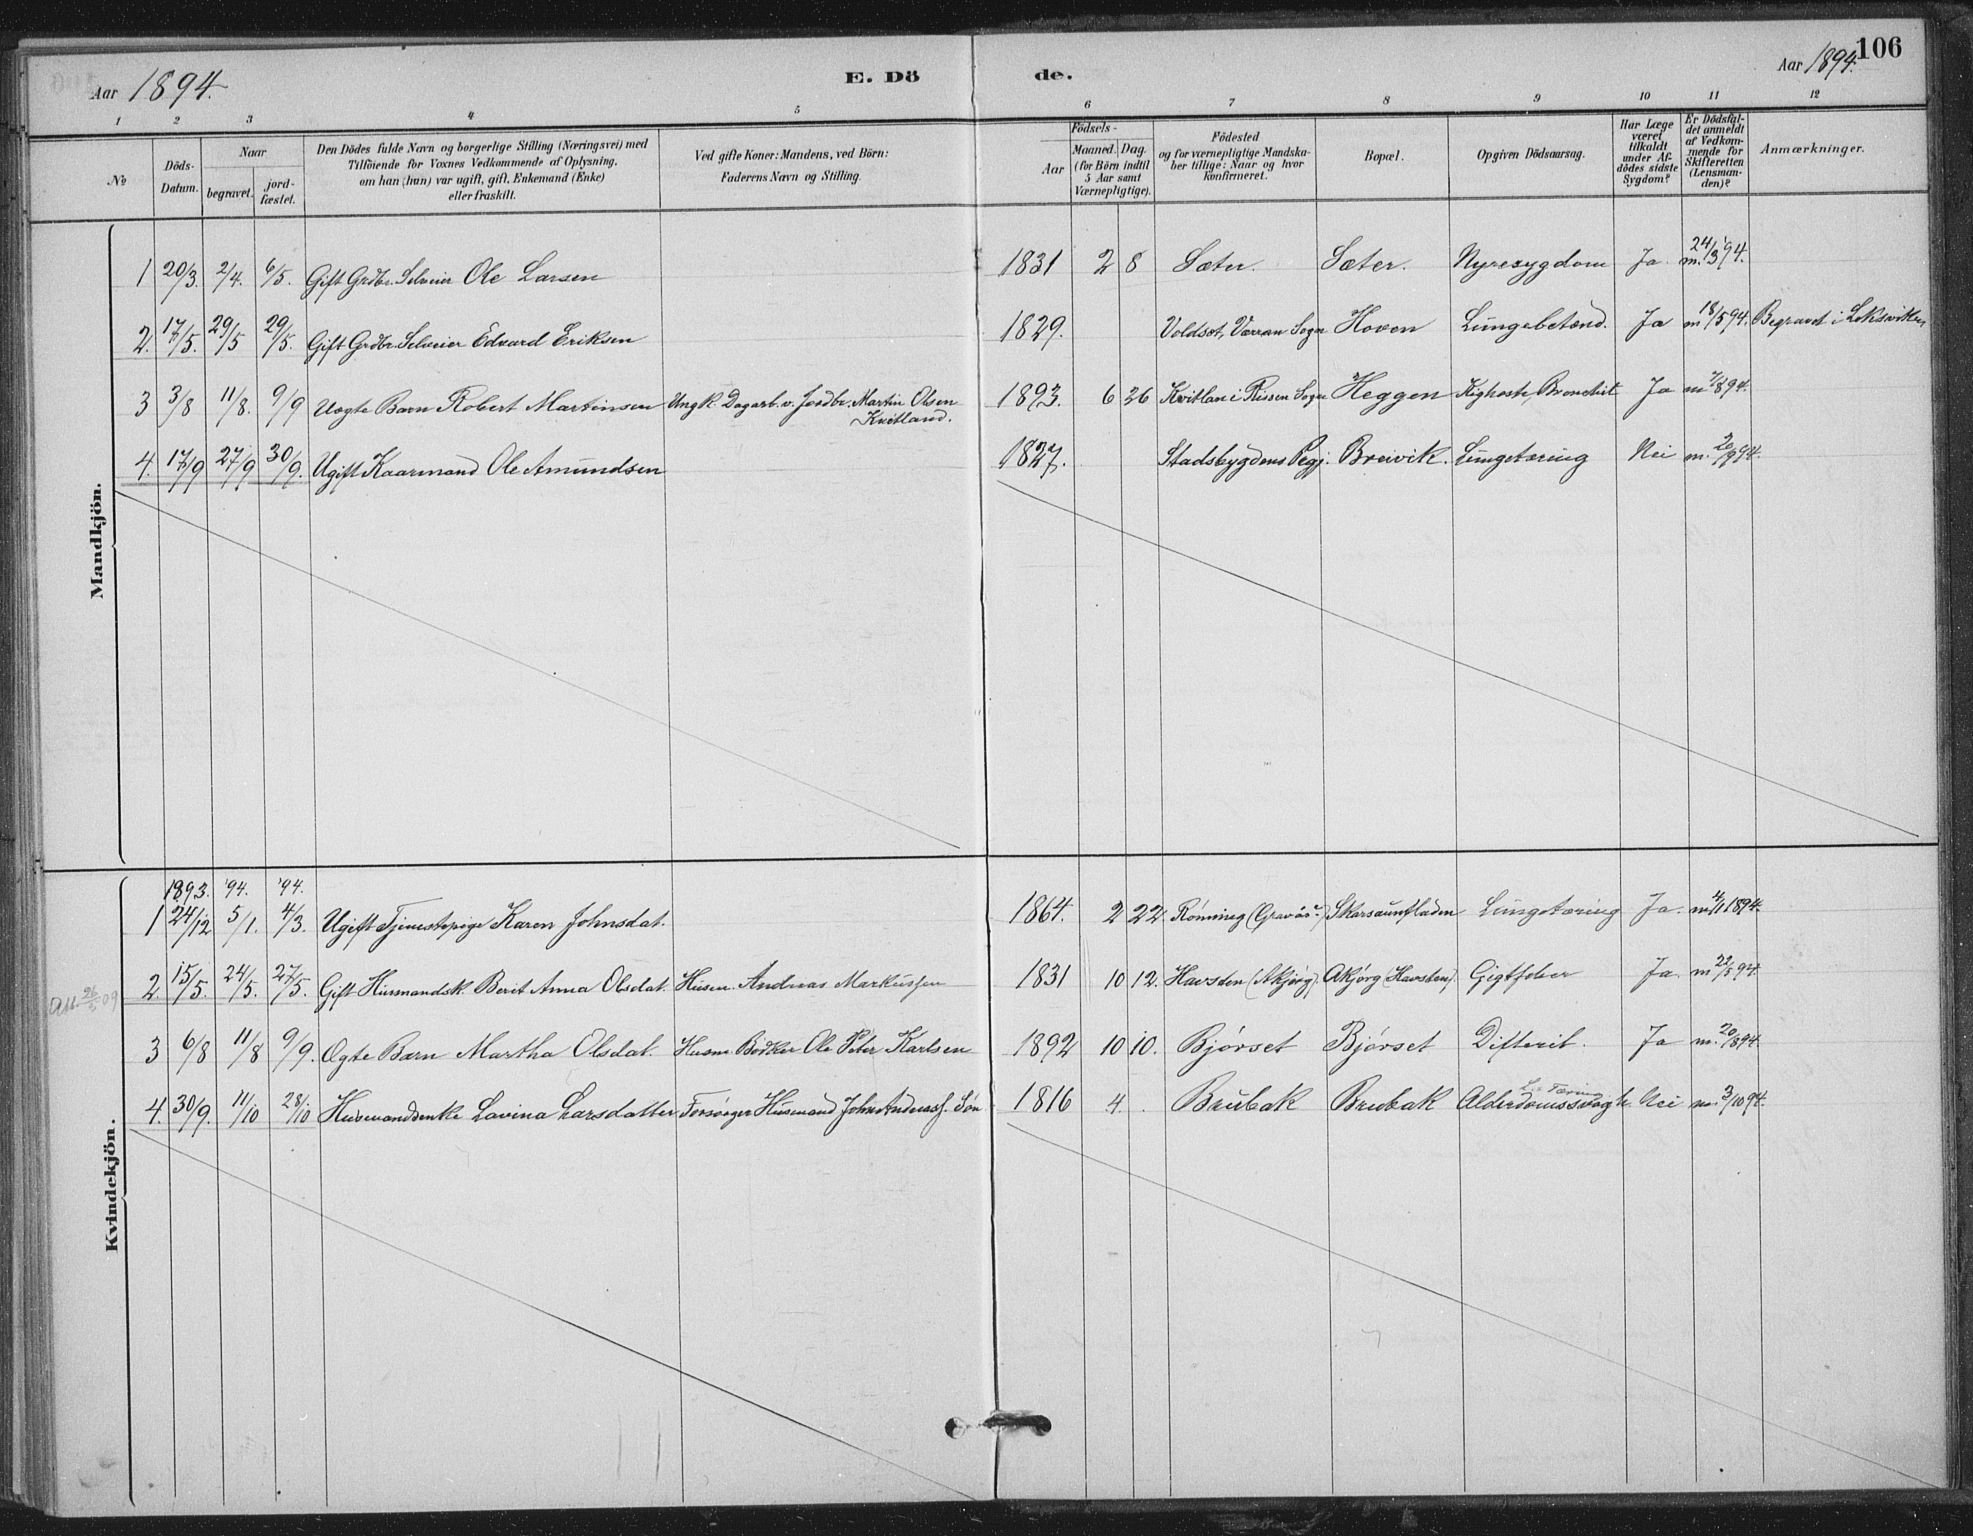 Aar 1894. E. Dö de. Aar 1894. 106
1 2 3 4 5 6 7 8 9 10 11 12
№
Döds-Datum.
Naar
begravet.
jord-fæstet.
Den Dödes fulde Navn og borgerlige Stilling (Næringsvei) med
Tilföiende for Voxnes Vedkommende af Oplysning,
om han (hun) var ugift, gift, Enkemand (Enke)
eller fraskilt.
Ved gifte Koner: Mandens, ved Börn:
Faderens Navn og Stilling.
Födsels-
Aar
Maaned. Dag.
(for Börn indtil
5 Aar samt
Værnepligtige).
Födested
og for værnepligtige Mandska-
ber tillige: Naar og hvor
konfirmeret.
Bopæl.
Opgiven Dödsaarsag.
Har Læge
været
tilkaldt
under Af-
dödes sidste
Sygdom?
Er Dödsfal-
det anmeldt
af Vedkom-
mende for
Skifteretten
(Lensman-
den)?
Anmærkninger.
Mandkjön.
1 20/3. 2/4. 6/5. Gift Grdbr. Selveier Ole Larsen 1831 2 8 Sæter. Sæter. Nyresygdom Ja. m. 24/3 '94.
2. 17/5. 29/5 29/5. Gift Grdbr. Selveier Edvard Eriksen 1829. Voldset, Værran Sogn Hoven Lungebetænd. Ja m 18/5 94. Begravet i Leksviken
3 3/8 11/8. 9/9 Uægte Barn Robert Martinsen Ungk. Dagarb. v. Jordbr. Martin Olsen Kvitland. 1893. 6 26 Kvitlan i Rissen Sogn Heggen Kighoste, Bronchit Ja m 7/8 94.
4. 17/9 27/9 30/9. Ugift Kaarmand Ole Amundsen 1827. Stadsbygdens Pgj. Breivik. Lungetæring Nei m. 20/9 94.
Kvindekjön.
1893. '94. '94.
1 24/12 5/1. 4/3. Ugift Tjenestepige Karen Johnsdat. 1864. 2 22 Rönning (Gravås) Skarsaunfladen Lungetæring Ja. m 4/1 1894.
2. 15/5. 24/5. 27/5. Gift Husmandsk. Berit Anna Olsdat. Husm. Andreas Markussen 1831 10 12. Havsten (Akjörg). Akjörg (Havsten). Gigtfeber Ja. m 22/5 94.
26/5 09
3 6/8 11/8 9/9. Ægte Barn Martha Olsdat. Husm. Bödker Ole Peter Karlsen 1892 10 10. Bjórset Bjórset Difterit. Ja m. 20/8 94
4. 30/9. 11/10 28/10 Husmandsenke Lavina Larsdatter Forsörger Husmand John Andreass. Sön 1816 4. Brubak Brubak Alderdomssvagh. Nei m. 3/10 94.